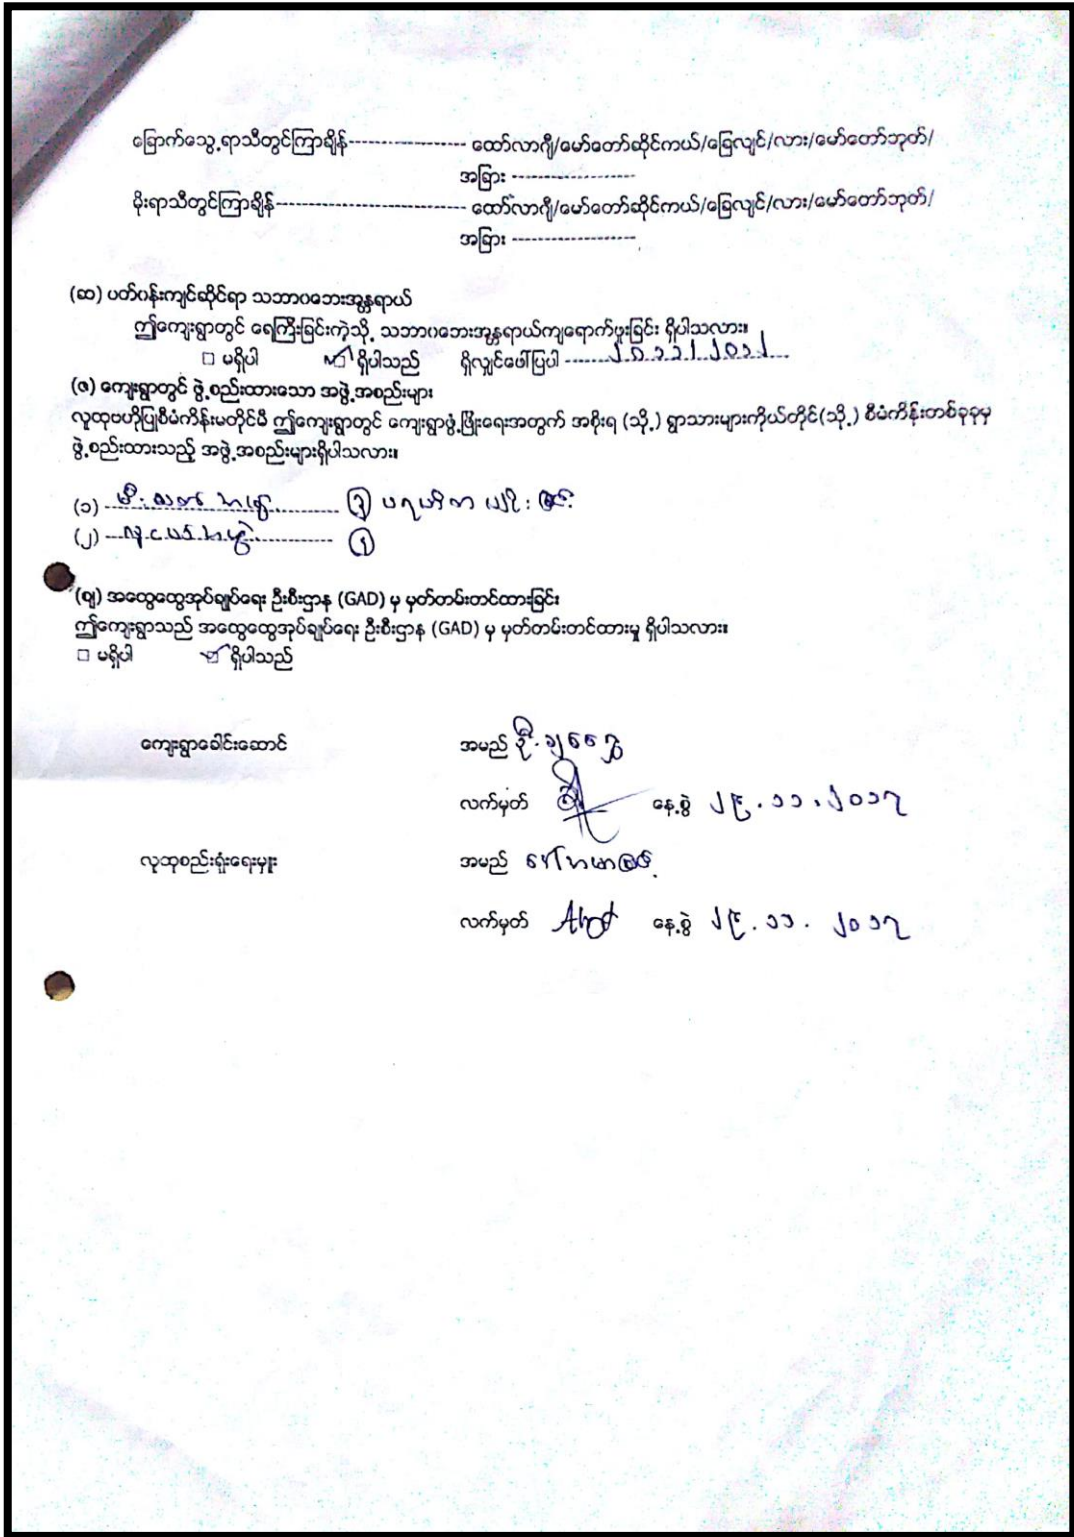 ခြောက်သွေ့ရာသီတွင်ကြာချိန်------------------ ထော်လာဂျီ/မော်တော်ဆိုင်ကယ်/ခြေလျင်/လား/မော်တော်ဘုတ်/
အခြား -------------------
မိုးရာသီတွင်ကြာချိန်----------------------------- ထော်လာဂျီ/မော်တော်ဆိုင်ကယ်/ခြေလျင်/လား/မော်တော်ဘုတ်/
အခြား -------------------
(ဆ) ပတ်ဝန်းကျင်ဆိုင်ရာ သဘာဝဘေးအန္တရာယ်
ဤကျေးရွာတွင် ရေကြီးခြင်းကဲ့သို့ သဘာဝဘေးအန္တရာယ်ကျရောက်ဖူးခြင်း ရှိပါသလား။
□ မရှိပါ ☑ ရှိပါသည် ရှိလျှင်ဖေါ်ပြပါ -------၂၀၁၁/၂၀၁၂
(ဇ) ကျေးရွာတွင် ဖွဲ့စည်းထားသော အဖွဲ့အစည်းများ
လူထုဗဟိုပြုစီမံကိန်းမတိုင်မီ ဤကျေးရွာတွင် ကျေးရွာဖွံ့ဖြိုးရေးအတွက် အစိုးရ (သို့) ရွာသားများကိုယ်တိုင်(သို့) စီမံကိန်းတစ်ခုခုမှ
ဖွဲ့စည်းထားသည့် အဖွဲ့အစည်းများရှိပါသလား။
(၁) မီးသတ်အဖွဲ့ (၃) ပရဟိတ
(၂) လူငယ်အဖွဲ့ (၄)
(ဈ) အထွေထွေအုပ်ချုပ်ရေး ဦးစီးဌာန (GAD) မှ မှတ်တမ်းတင်ထားခြင်း
ဤကျေးရွာသည် အထွေထွေအုပ်ချုပ်ရေး ဦးစီးဌာန (GAD) မှ မှတ်တမ်းတင်ထားမှု ရှိပါသလား။
□ မရှိပါ ☑ ရှိပါသည်
ကျေးရွာခေါင်းဆောင် အမည်
လက်မှတ် နေ့စွဲ ၂၉.၁၁.၂၀၁၇
လူထုစည်းရုံးရေးမှူး အမည်
လက်မှတ် နေ့စွဲ ၂၉.၁၁.၂၀၁၇